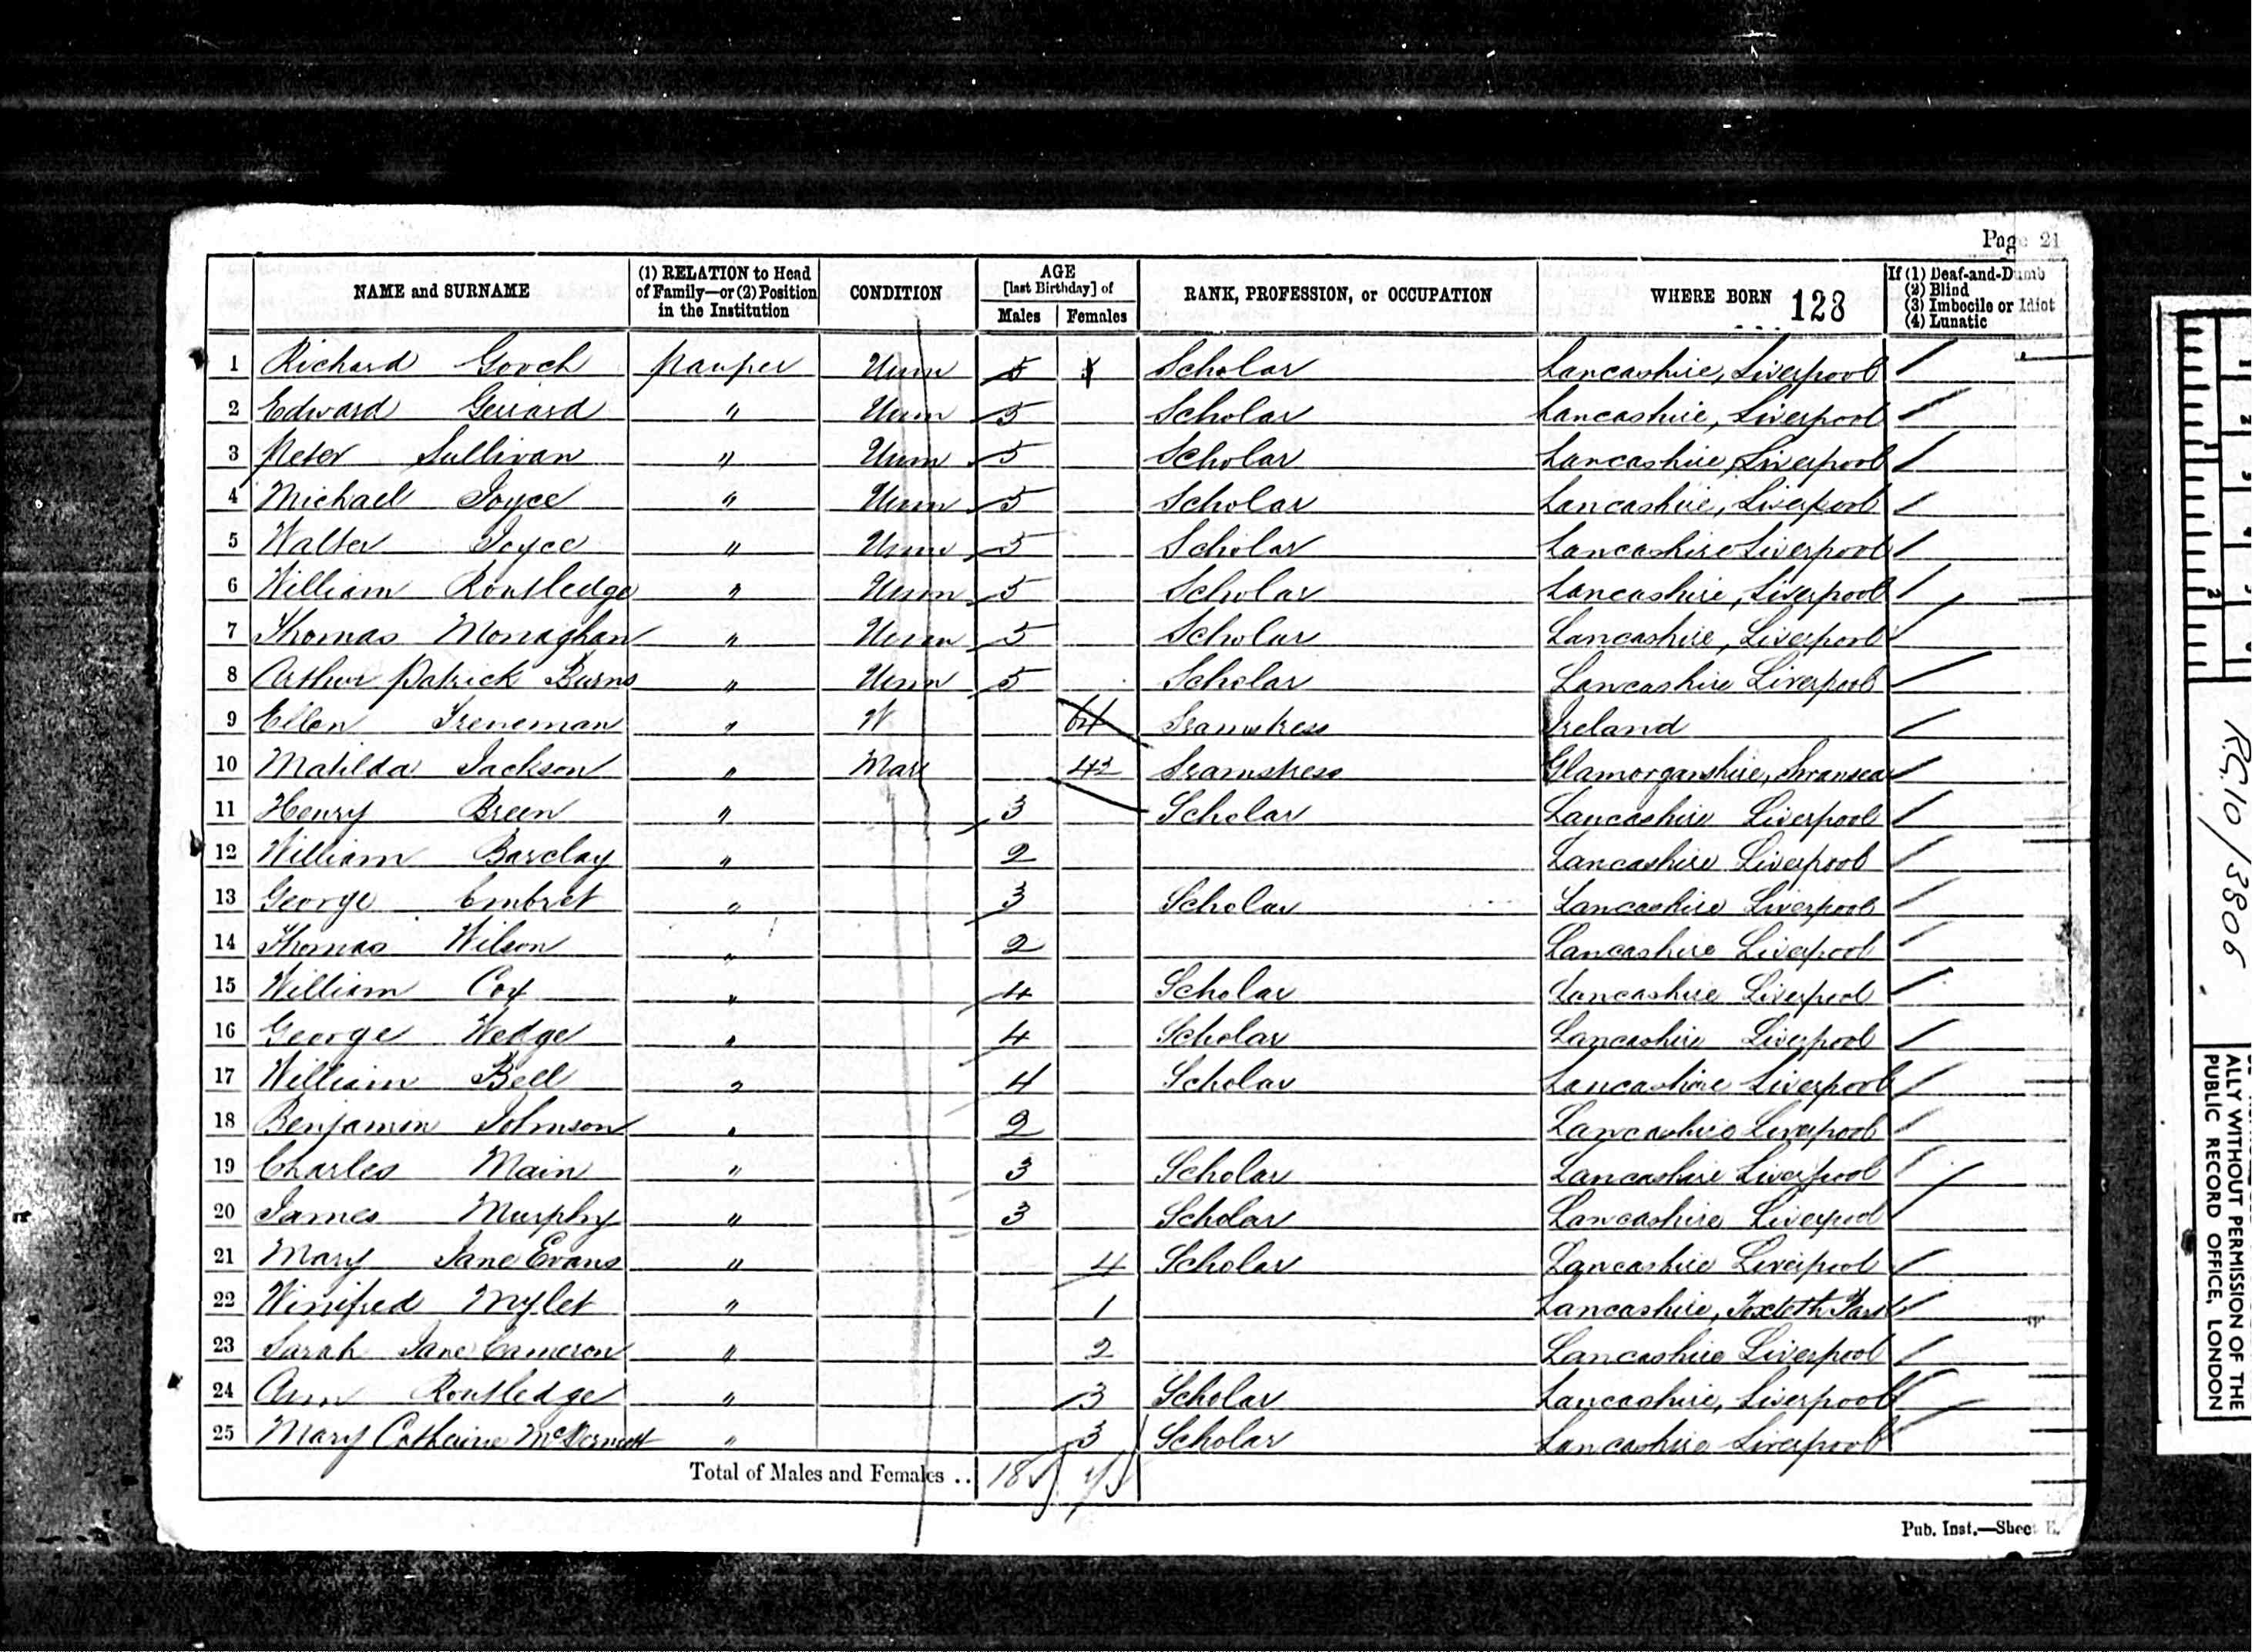 Page 21
NAME and SURNAME (1) RELATION to Head of Family—or (2) Position in the Institution CONDITION AGE [last Birthday] of Males Females RANK, PROFESSION, or OCCUPATION WHERE BORN 128 If (1) Deaf-and-Dumb (2) Blind (3) Imbecile or Idiot (4) Lunatic
1 Richard Gooch pauper Unm 5 Scholar Lancashire, Liverpool
2 Edward Gerrard " Unm 5 Scholar Lancashire, Liverpool
3 Peter Sullivan " Unm 5 Scholar Lancashire, Liverpool
4 Michael Joyce " Unm 5 Scholar Lancashire, Liverpool
5 Walter Joyce " Unm 5 Scholar Lancashire Liverpool
6 William Routledge " Unm 5 Scholar Lancashire, Liverpool
7 Thomas Monaghan " Unm 5 Scholar Lancashire, Liverpool
8 Arthur Patrick Burns " Unm 5 Scholar Lancashire Liverpool
9 Ellen " W 64 Seamstress Ireland
10 Matilda Jackson " Mar 42 Seamstress Glamorganshire, Swansea
11 Henry Breen " 3 Scholar Lancashire Liverpool
12 William Barclay " 2 Lancashire Liverpool
13 George Embret " 3 Scholar Lancashire Liverpool
14 Thomas Wilson " 2 Lancashire Liverpool
15 William Cox " 4 Scholar Lancashire Liverpool
16 George Wedge " 4 Scholar Lancashire Liverpool
17 William Bell " 4 Scholar Lancashire Liverpool
18 Benjamin Johnson " 2 Lancashire Liverpool
19 Charles Main " 3 Scholar Lancashire Liverpool
20 James Murphy " 3 Scholar Lancashire Liverpool
21 Mary Jane Evans " 4 Scholar Lancashire Liverpool
22 Winifred Mylet " 1 Lancashire, Toxteth Park
23 Sarah Jane Cameron " 2 Lancashire Liverpool
24 Ann Routledge " 3 Scholar Lancashire, Liverpool
25 Mary Catherine McDermott " 3 Scholar Lancashire Liverpool
Total of Males and Females .. 18 7
Pub. Inst.—Sheet E.
RG 10/3806
ALLY WITHOUT PERMISSION OF THE
PUBLIC RECORD OFFICE, LONDON